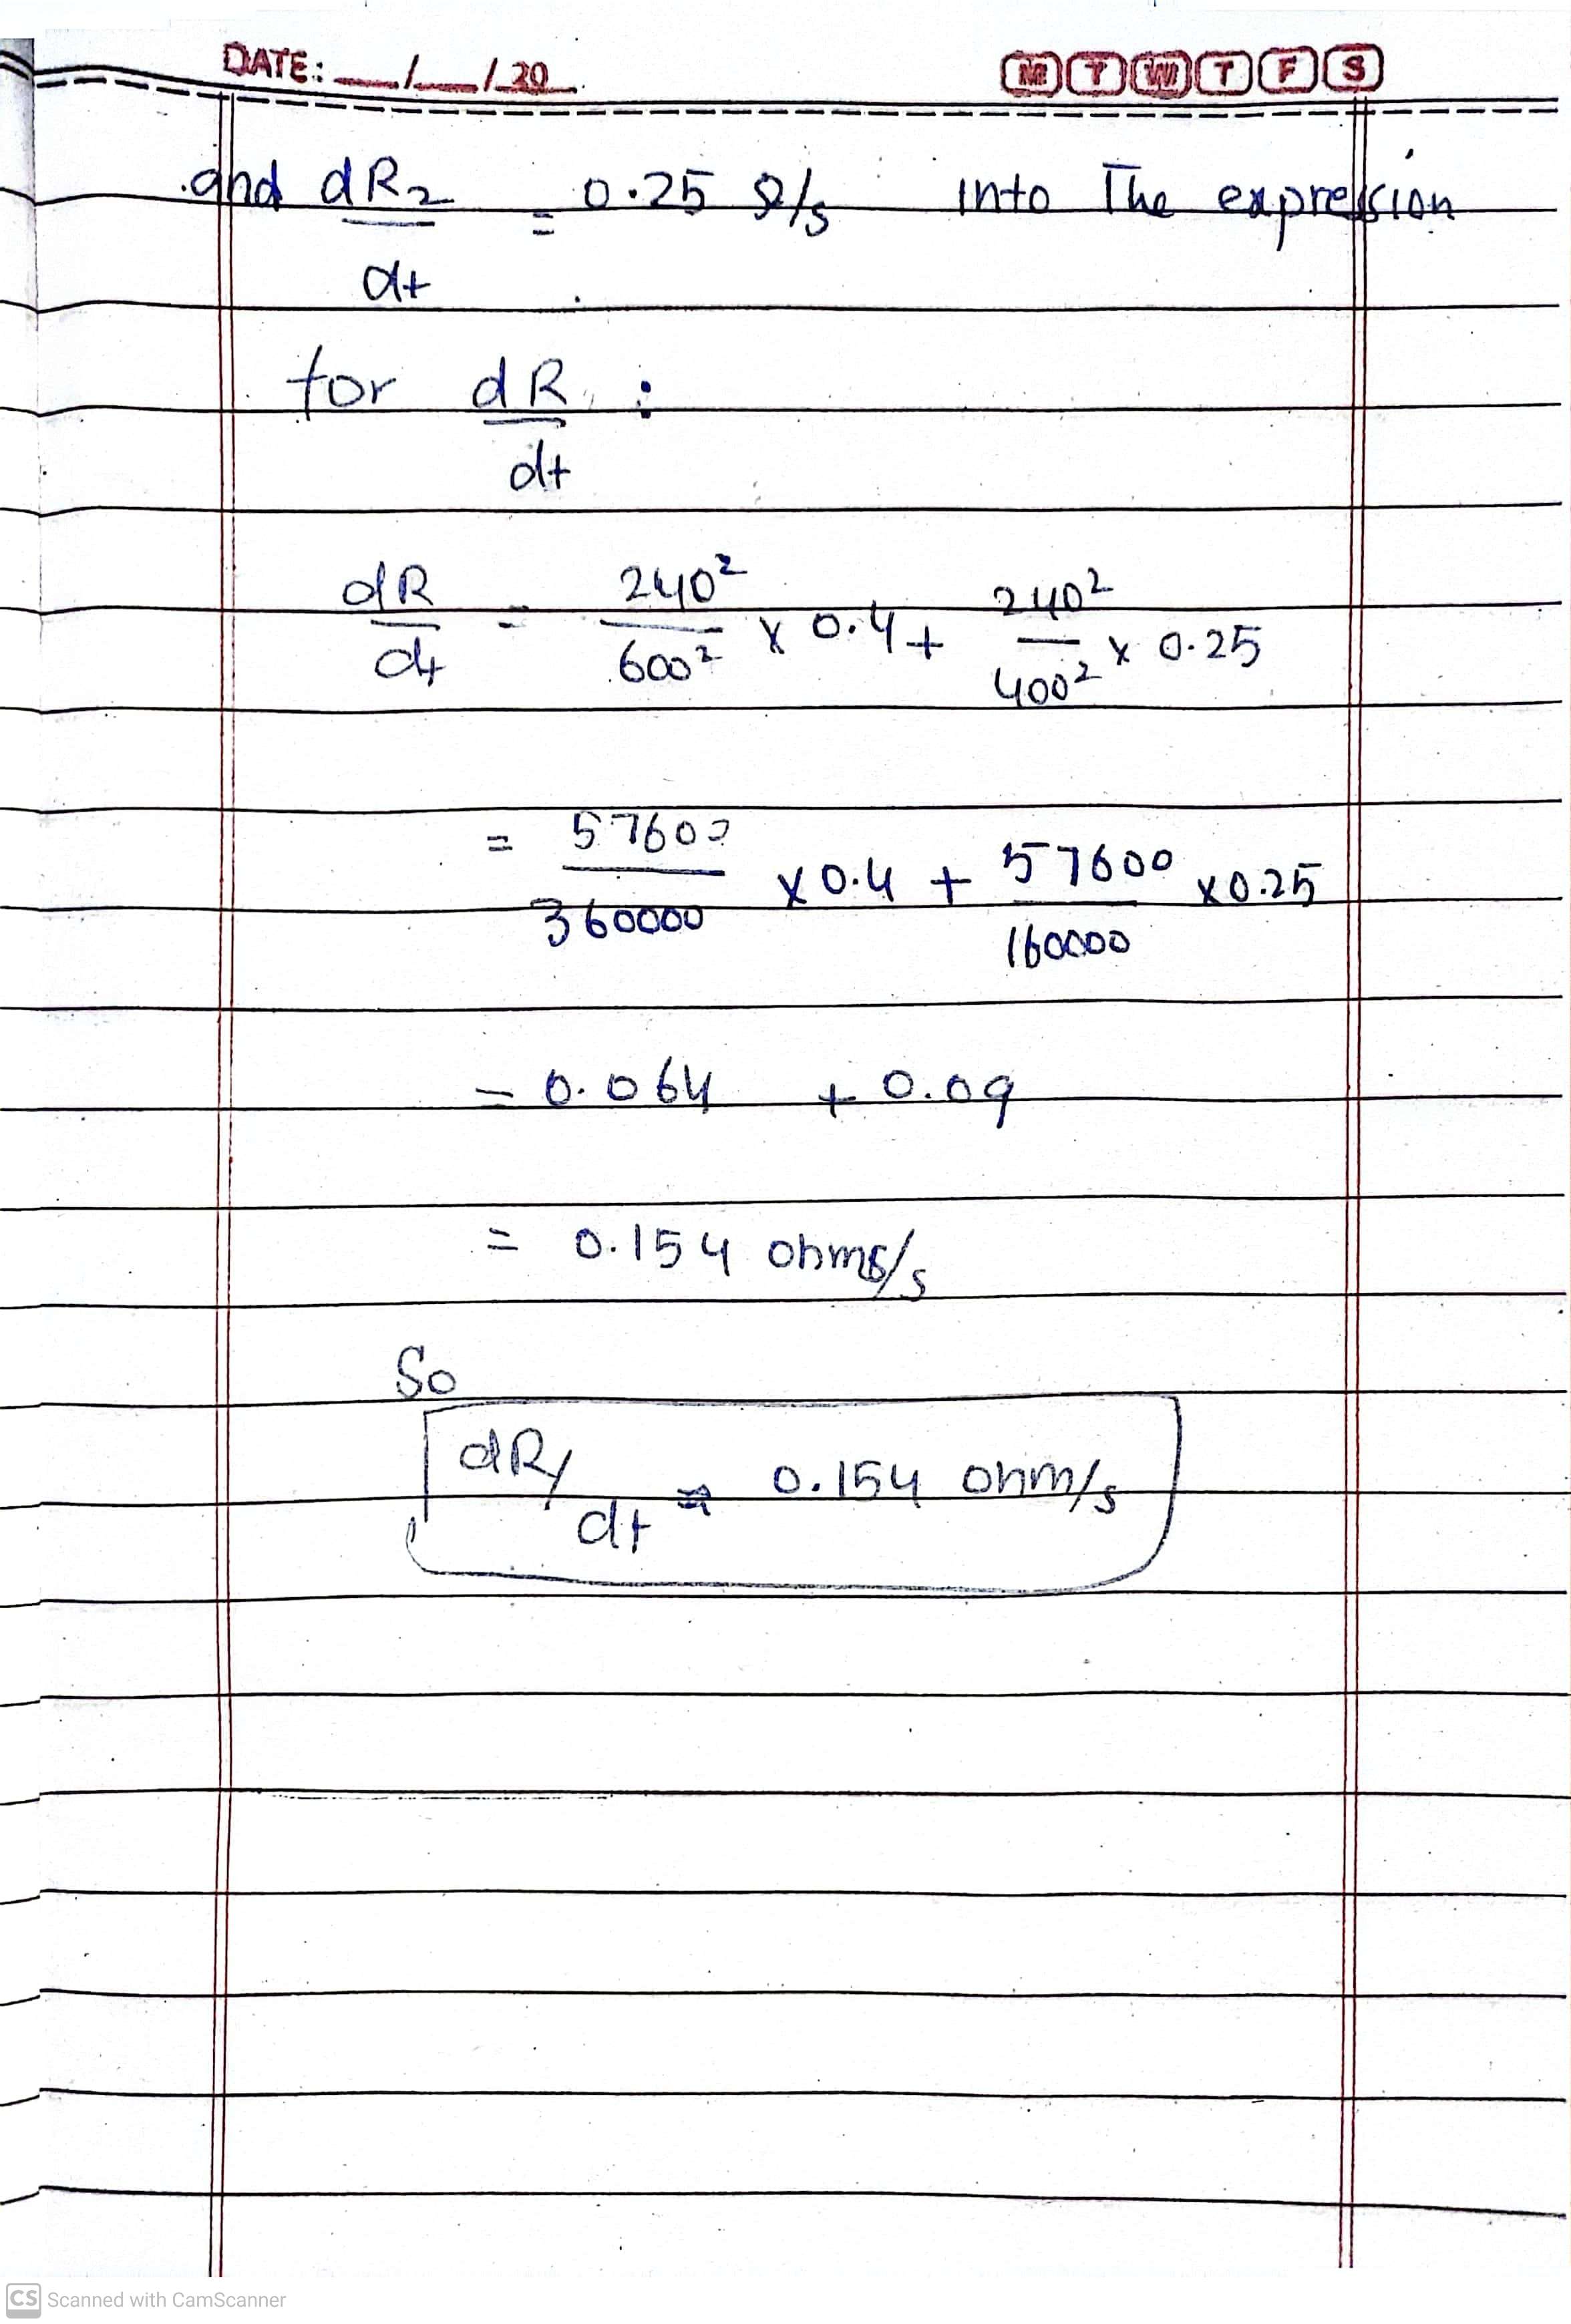 DATE: __/__/20__ M T W T F S
and dR₂/dt = 0.25 Ω/s into The expression
for dR/dt :
dR/dt = 240²/600² x 0.4 + 240²/400² x 0.25
= 57600/360000 x 0.4 + 57600/160000 x 0.25
= 0.064 + 0.09
= 0.154 ohms/s
So
dR/dt = 0.154 ohm/s
CS Scanned with CamScanner